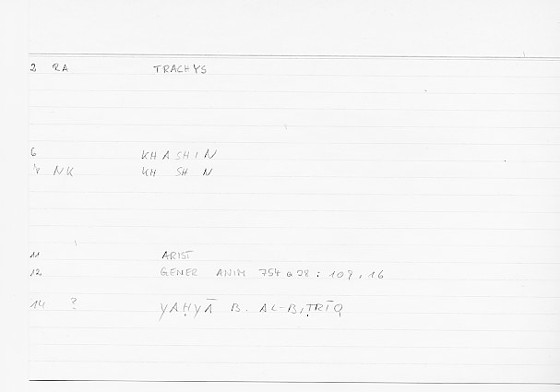 2 RA TRACHYS
6 KHASHIN
NK KH SH N
11 ARIST
12 GENER ANIM 754 a 28 : 109, 16
14 ? YAḤYĀ B. AL-BIṬRĪQ